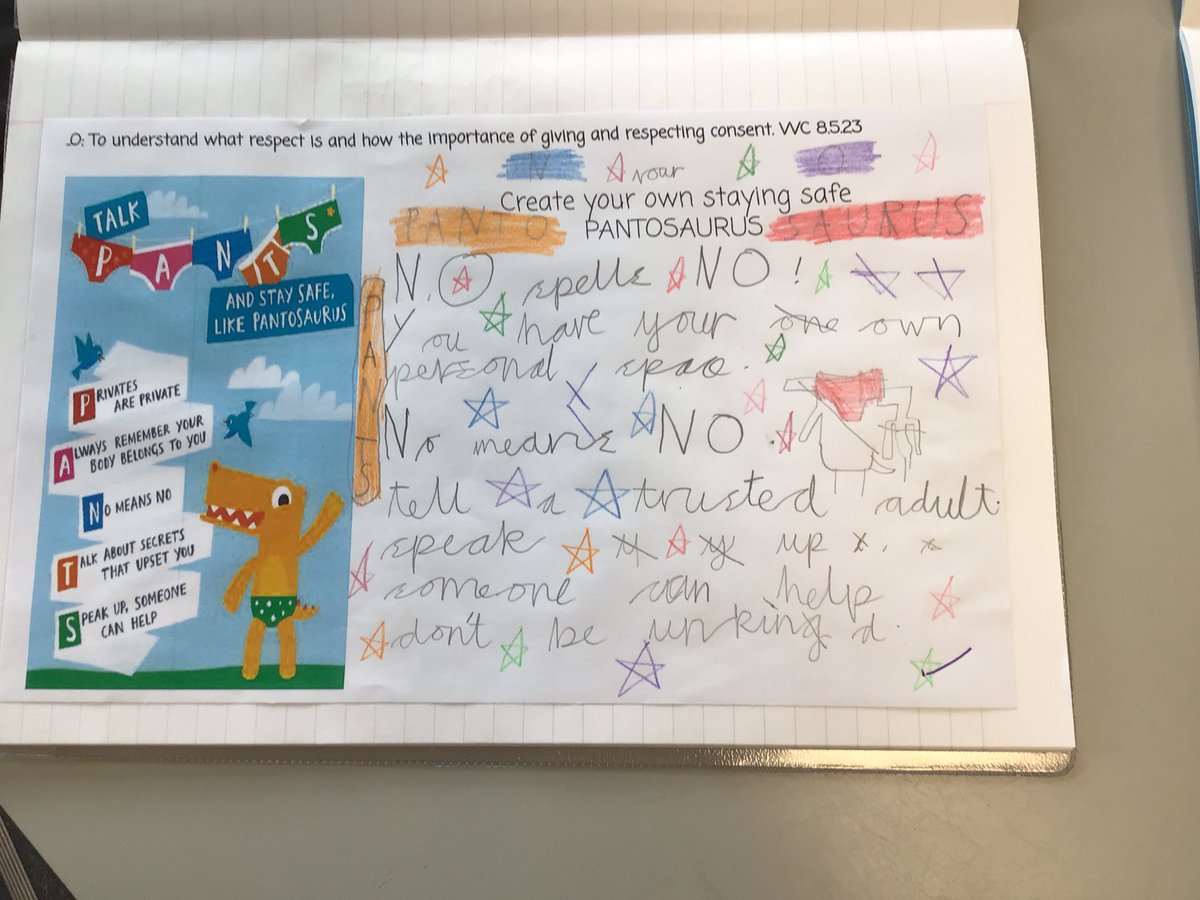 .O: To understand what respect is and how the importance of giving and respecting consent. WC 8.5.23
TALK
P A N T S
AND STAY SAFE,
LIKE PANTOSAURUS
PRIVATES
ARE PRIVATE
ALWAYS REMEMBER YOUR
BODY BELONGS TO YOU
NO MEANS NO
TALK ABOUT SECRETS
THAT UPSET YOU
SPEAK UP, SOMEONE
CAN HELP
N your O
Create your own staying safe
PANTO PANTOSAURUS SAURUS
PANTS
N, O spells NO!
You have your one own
personal spac.
No means NO.
tell a trusted adult.
speak up
someone can help
don't be unkingd.